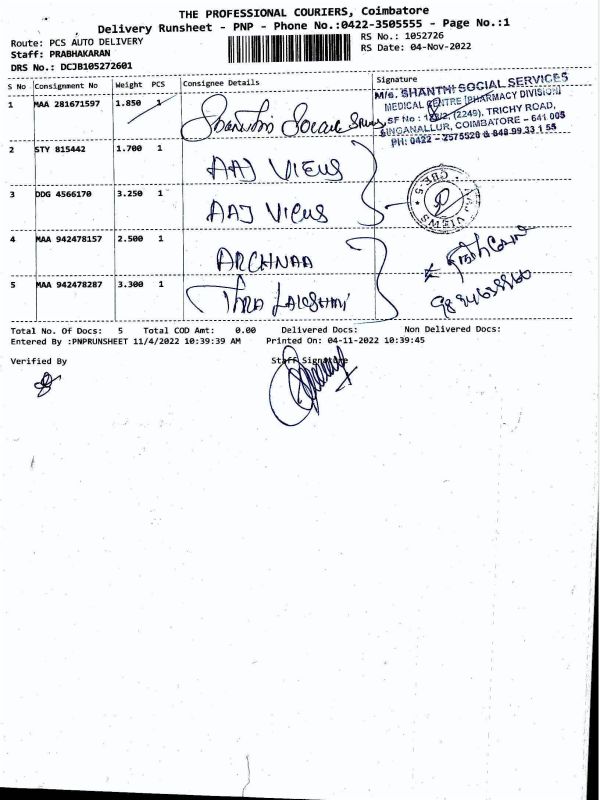 THE PROFESSIONAL COURIERS, Coimbatore
Delivery Runsheet - PNP - Phone No.:0422-3505555 - Page No.:1
Route: PCS AUTO DELIVERY
RS No.: 1052726
Staff: PRABHAKARAN
RS Date: 04-Nov-2022
DRS No.: DCJB105272601
S No Consignment No Weight PCS Consignee Details Signature
1 MAA 281671597 1.850 1
M/s. SHANTHI SOCIAL SERVICES
MEDICAL CENTRE (PHARMACY DIVISION)
TRICHY ROAD,
SINGANALLUR, COIMBATORE - 641 005
2 STY 815442 1.700 1 AAJ VIEWS
3 DDG 4566170 3.250 1 AAJ VIEWS
4 MAA 942478157 2.500 1 ARCHNAA
5 MAA 942478287 3.300 1
Total No. Of Docs: 5 Total COD Amt: 0.00 Delivered Docs: Non Delivered Docs:
Entered By :PNPRUNSHEET 11/4/2022 10:39:39 AM Printed On: 04-11-2022 10:39:45
Verified By Staff Signature